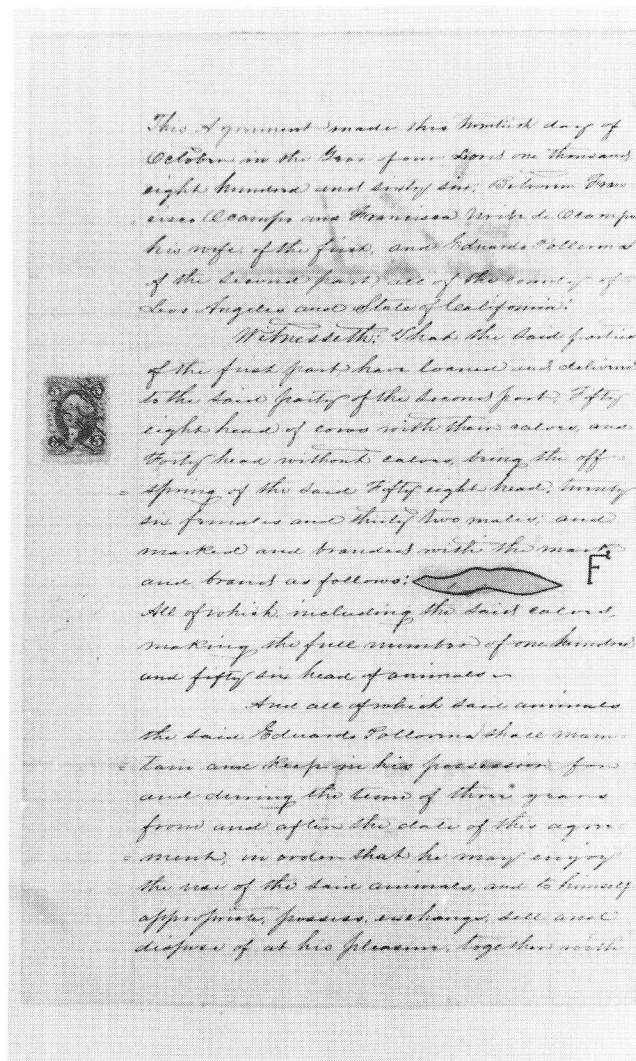 This Agreement made this twentieth day of
October in the Year of our Lord one thousand
eight hundred and sixty six; Between Fran
cisco Ocampo and Francisca Uribe de Ocampo
his wife, of the first, and Eduardo Pollorena
of the second part, all of the county of
Los Angeles and State of California:
Witnesseth; That the said parties
of the first part, have loaned and delivered
to the said party of the second part, Fifty
eight head of cows with their calves, and
Forty head without calves, being the off-
=spring of the said Fifty eight head, twenty
six females and thirty two males; and
marked and branded with the mark
and brand as follows: F
All of which including the said calves,
making the full number of one hundred
and fifty six head of animals.
And all of which said animals
the said Eduardo Pollorena shall main-
=tain and keep in his possession for
and during the term of three years
from and after the date of this agree-
=ment, in order that he may enjoy
the use of the said animals, and to himself
appropriate, possess, exchange, sell and
dispose of at his pleasure, together with